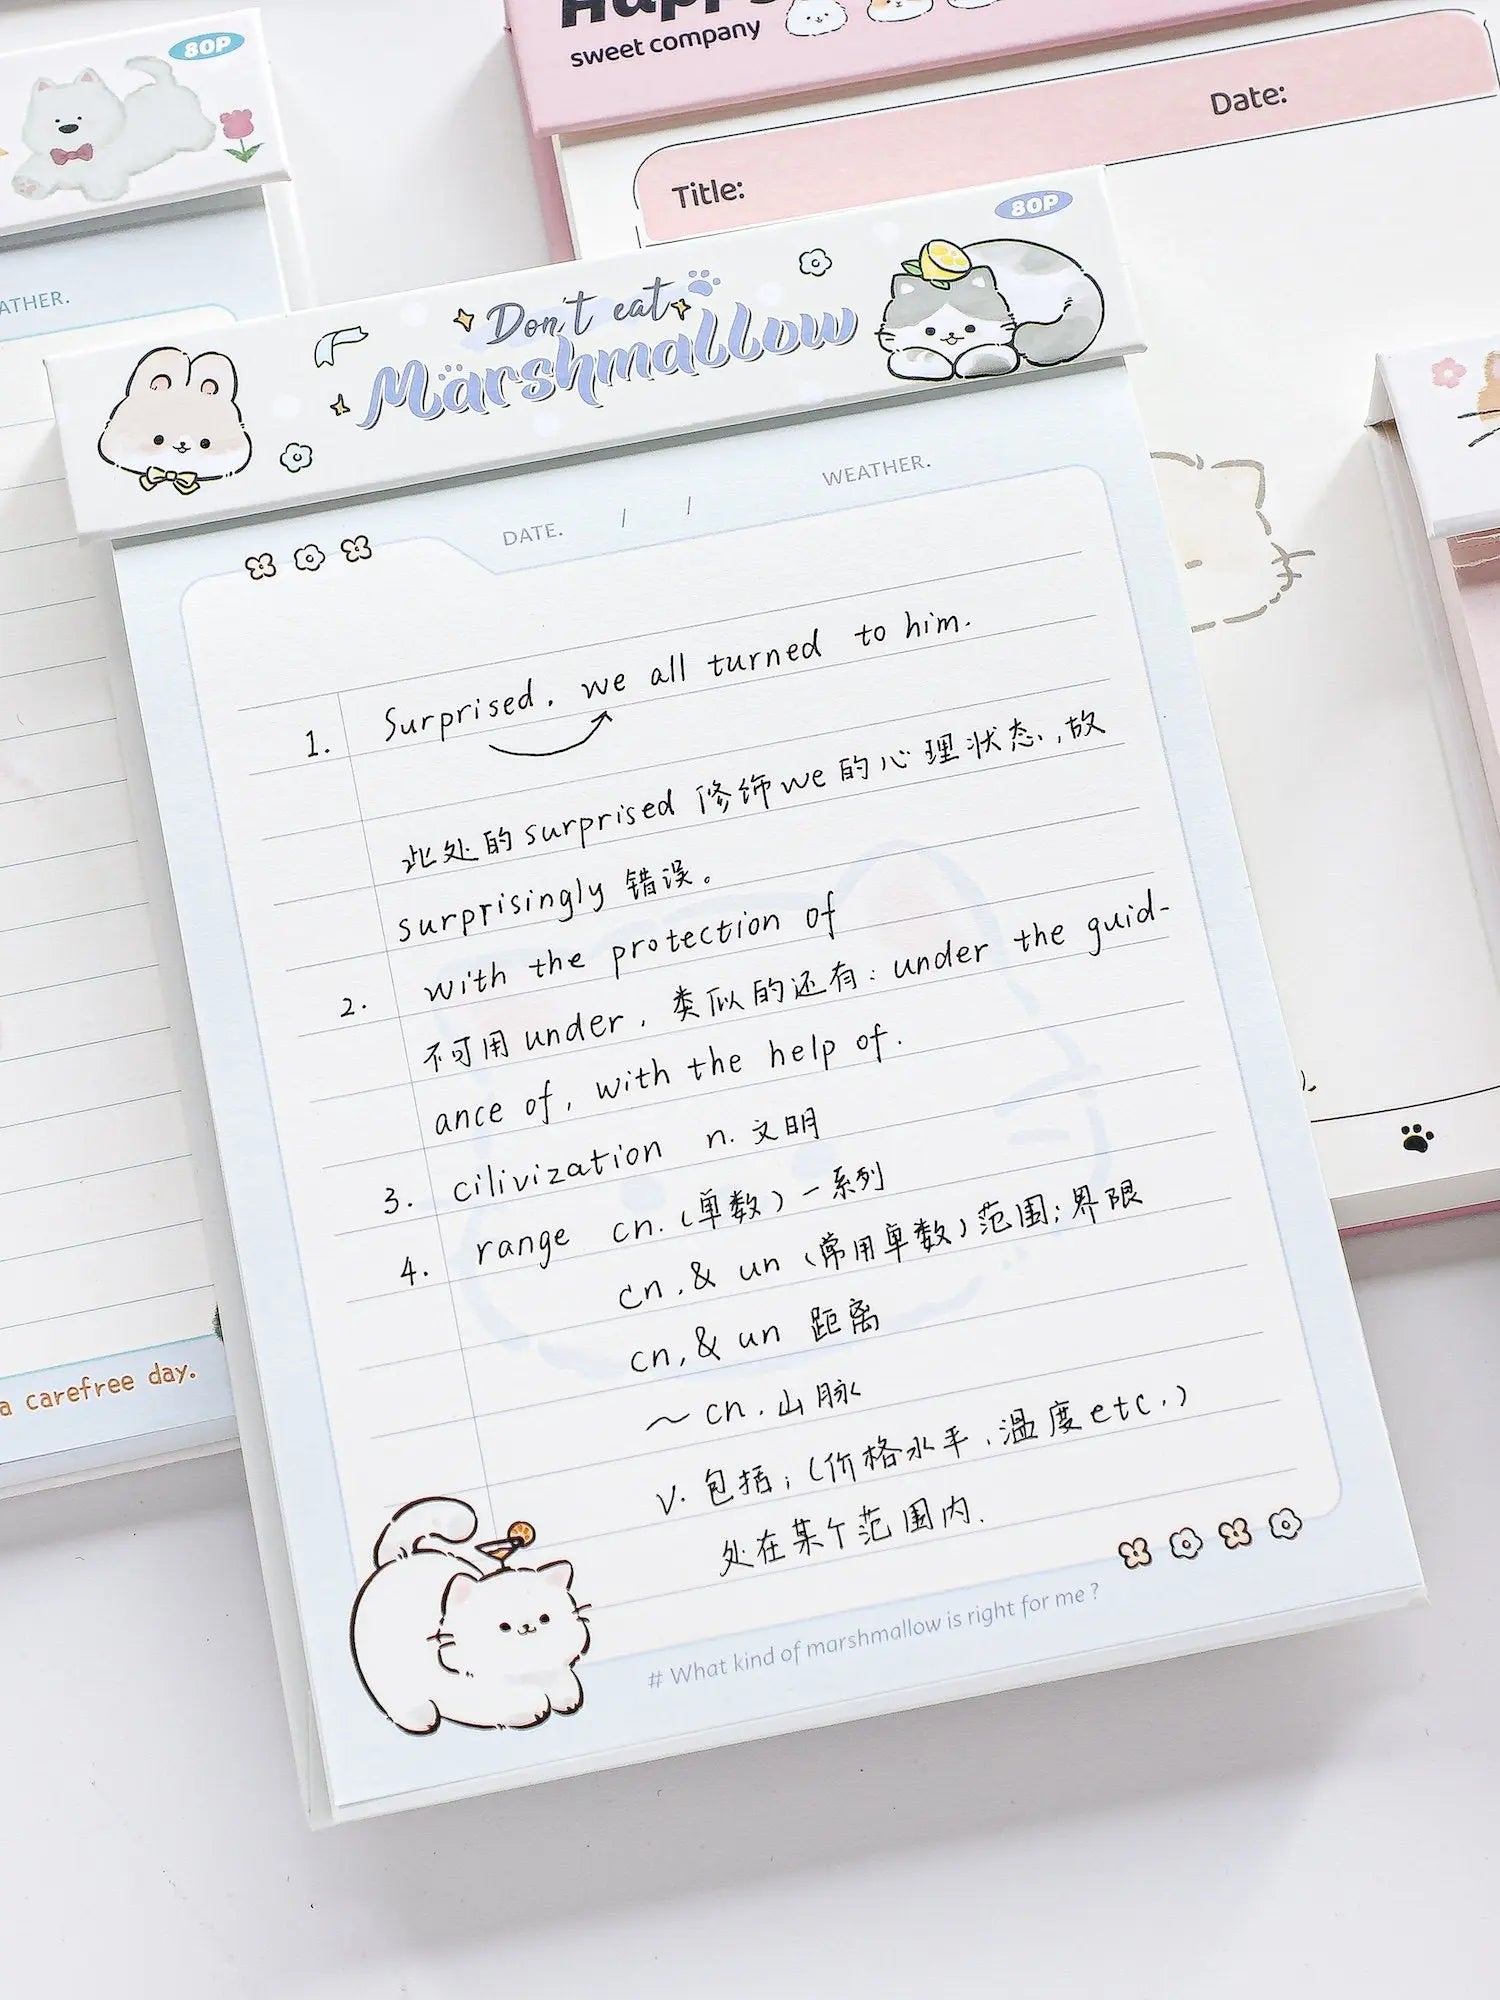 80P
Happ
sweet company
Title:
Date:
ATHER.
80P
Don't eat
Marshmallow
DATE. / /
WEATHER.
1. Surprised, we all turned to him.
此处的surprised 修饰we的心理状态,故
surprisingly 错误。
2. with the protection of
不可用under, 类似的还有: under the guid-
ance of, with the help of.
3. cilivization n. 文明
4. range cn. (单数) 一系列
cn. & un (常用单数) 范围; 界限
cn, & un 距离
~ cn. 山脉
v. 包括; (价格水平, 温度etc.)
处在某个范围内.
# What kind of marshmallow is right for me ?
a carefree day.